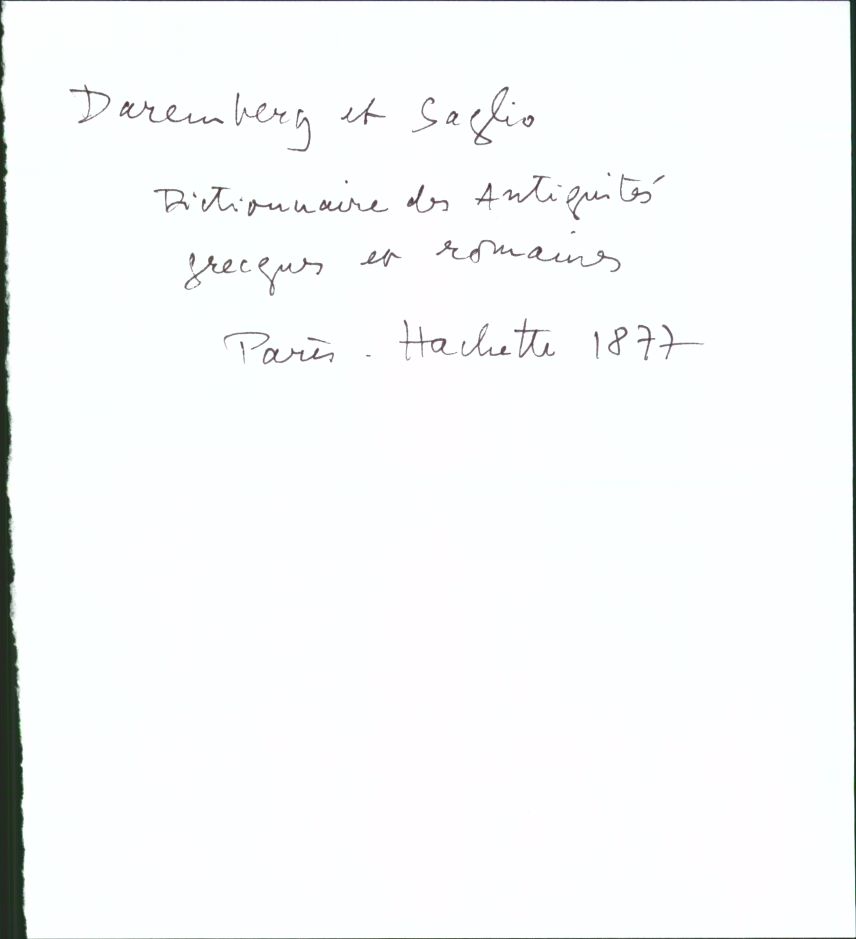 Daremberg et Saglio
Dictionnaire des Antiquités
grecques et romaines
Paris. Hachette 1877